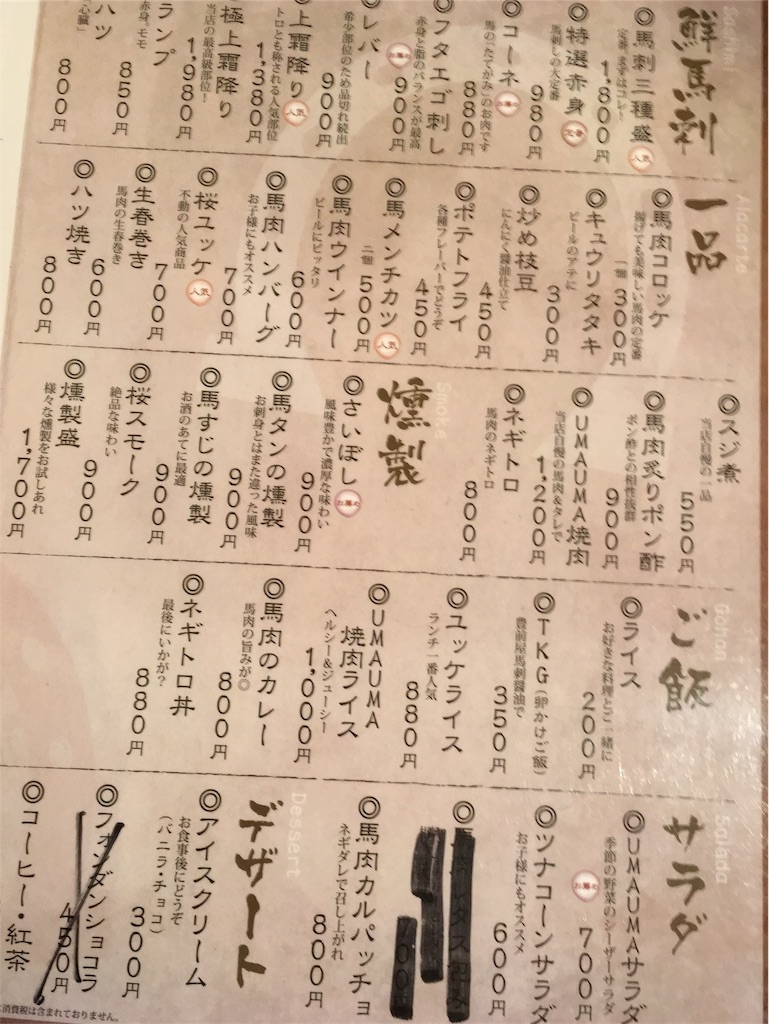 鮮馬刺
◎馬刺三種盛
定番、まずはコレ！
1,800円
人気
◎特選赤身
馬刺しの大定番
980円
定番
◎コーネ
馬の「たてがみ」のお肉です
880円
お薦め
フタエゴ刺し
赤身と脂のバランスが最高
900円
お薦め
レバー
希少部位のため品切れ続出
900円
上霜降り
トロとも称される人気部位
1,380円
人気
極上霜降り
当店の最高級部位！
1,980円
ランプ
赤身。モモ
850円
ハツ
「心臓」
800円
一品
Alacarte
◎馬肉コロッケ
揚げても美味しい馬肉の定番
一個 300円
◎キュウリタタキ
ビールのアテに
300円
◎炒め枝豆
にんにく醤油仕立て
450円
◎ポテトフライ
各種フレーバーでどうぞ
450円
◎馬メンチカツ
人気
二個 500円
◎馬肉ウインナー
ビールにピッタリ
600円
◎馬肉ハンバーグ
お子様にもオススメ
700円
◎桜ユッケ
人気
不動の人気商品
700円
◎生春巻き
馬肉の生春巻き
600円
◎ハツ焼き
800円
◎スジ煮
当店自慢の一品
550円
◎馬肉炙りポン酢
ポン酢との相性抜群
900円
◎UMAUMA焼肉
当店自慢の馬肉&タレで
1,200円
◎ネギトロ
馬肉のネギトロ
800円
燻製
Smoke
◎さいぼし
お薦め
風味豊かで濃厚な味わい
900円
◎馬タンの燻製
お刺身とはまた違った風味
900円
◎馬すじの燻製
お酒のあてに最適
900円
◎桜スモーク
絶品な味わい
900円
◎燻製盛
様々な燻製をお試しあれ
1,700円
ご飯
Gohan
◎ライス
お好きな料理とご一緒に
200円
◎TKG(卵かけご飯)
豊前屋馬刺醤油で
350円
◎ユッケライス
ランチ一番人気
880円
◎UMAUMA
焼肉ライス
ヘルシー&ジューシー
1,000円
◎馬肉のカレー
馬肉の旨みが◎
800円
◎ネギトロ丼
最後にいかが？
880円
サラダ
Salada
◎UMAUMAサラダ
季節の野菜のシーザーサラダ
お薦め
700円
◎ツナコーンサラダ
お子様にもオススメ
600円
◎馬肉カルパッチョ
ネギダレで召し上がれ
800円
デザート
Dessert
◎アイスクリーム
お食事後にどうぞ
(バニラ・チョコ)
300円
◎フォンダンショコラ
450円
◎コーヒー・紅茶
消費税は含まれておりません。